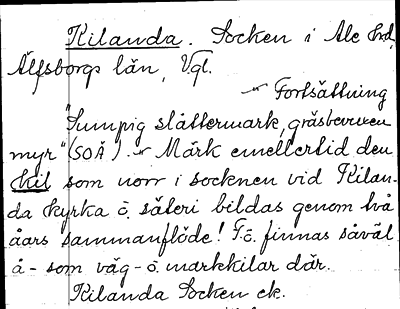 Kilanda. Socken i Ale hd,
Älfsborgs län, Vgl.
Fortsättning
"Sumpig slåttermark, gräsbevuxen
myr" (SOÄ). Märk emellertid den
kil som norr i socknen vid Kilan-
da kyrka o. säteri bildas genom två
åars sammanflöde! F.ö. finnas såväl
å- som väg- o. markkilar där.
Kilanda Socken ck.